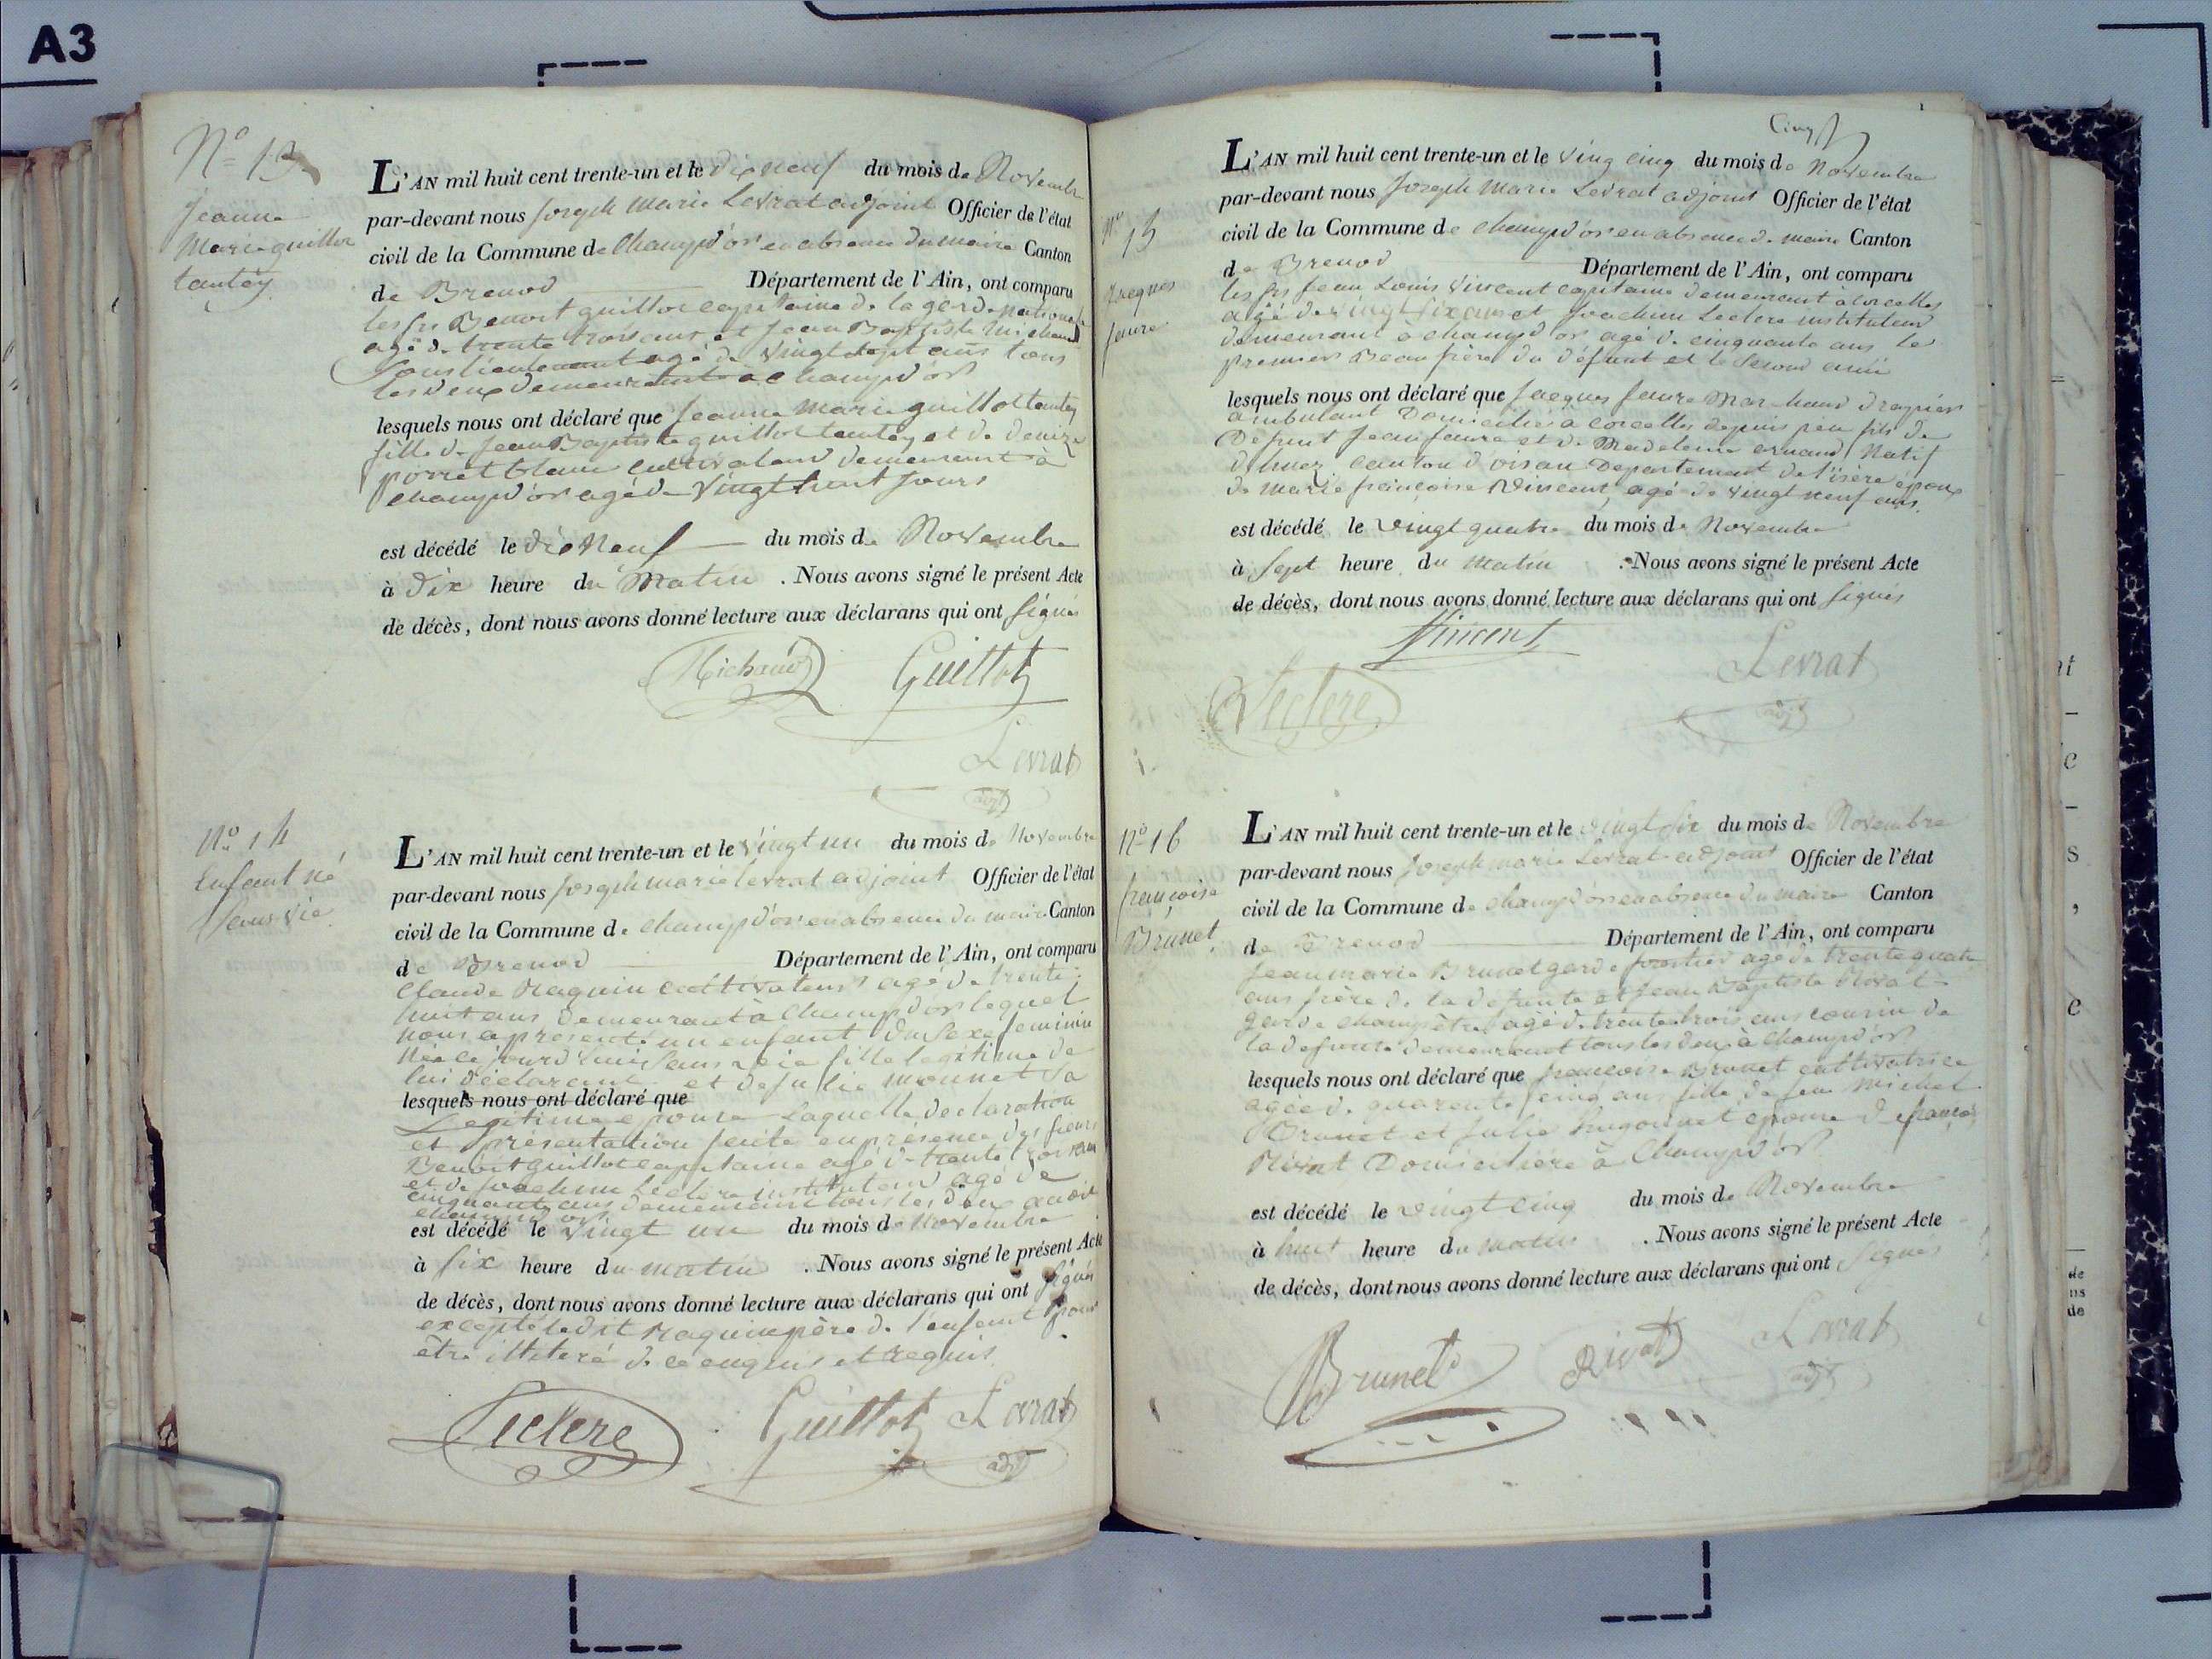 A3
N° 13
Jeanne
Marie guillot
tantey
L'AN mil huit cent trente-un et le dix neuf du mois de Novembre
par-devant nous Joseph Marie Levrat adjoint Officier de l'état
civil de la Commune de Champd'or en absence du maire Canton
de Brenod Département de l'Ain, ont comparu
les srs Benoit guillot capitaine de la garde nationale
agé de trente trois ans et Jean Baptiste Michaud
Sous lieutenant agé de vingt sept ans tous
les deux demeurant à Champd'or
lesquels nous ont déclaré que Jeanne Marie guillot tantey
fille de Jean Baptiste guillot tantey et de denize
porret blanc cultivateur demeurant à
champd'or agé de vingt huit jours
est décédé le dix Neuf du mois de Novembre
à dix heure du Matin . Nous avons signé le présent Acte
de décès, dont nous avons donné lecture aux déclarans qui ont signés
Michaud Guillot
Levrat
adjt
N° 14
Enfant né
Sans vie
L'AN mil huit cent trente-un et le vingt un du mois de Novembre
par-devant nous Joseph marie levrat adjoint Officier de l'état
civil de la Commune de champd'or en absence du maire Canton
de Brenod Département de l'Ain, ont comparu
Claude Maguin cultivateur agé de trente
huit ans demeurant à Champd'or lequel
nous a presenté un enfant du Sexe feminin
Née ce jourd'hui sans vie fille légitime de
lui déclarant et de julie monnet Sa
lesquels nous ont déclaré que
Legitime epouse Laquelle declaration
et présentation faite en présence des sieurs
Benoit guillot capitaine agé de trente trois ans
et de joachim Leclere instituteur agé de
cinquante ans demeurant tous les deux audit
champd'or
est décédé le vingt un du mois de Novembre
à six heure du matin . Nous avons signé le présent Acte
de décès, dont nous avons donné lecture aux déclarans qui ont signés
excepté ledit Maguin père de l'enfant pour
être illiteré de ce enquis et requis
Leclere Guillot Levrat
adjt
Cinq
N° 15
Jacques
faure
L'AN mil huit cent trente-un et le ving cinq du mois de Novembre
par-devant nous Joseph Marie Levrat adjoint Officier de l'état
civil de la Commune de champd'or en absence de maire Canton
de Brenod Département de l'Ain, ont comparu
les srs Jean Louis Vincent capitaine demeurant à Corcelles
agé de vingt six ans et Joachim Leclere instituteur
demeurant à champd'or agé de cinquante ans les
premier Beau frère du défunt et le Second ami
lesquels nous ont déclaré que Jacques faure Marchand drapier
ambulant Domicilié à corcelles depuis peu fils de
Defunt Jean faure et de Madeleine arnaud Natif
d'huez canton d'oisan Departement de l'isère époux
de Marie françoise Vincent agé de vingt neuf ans
est décédé le vingt quatre du mois de Novembre
à Sept heure du matin . Nous avons signé le présent Acte
de décès, dont nous avons donné lecture aux déclarans qui ont signés
Vincent
Leclere Levrat
adjt
N° 16
françoise
Brunet
L'AN mil huit cent trente-un et le vingt six du mois de Novembre
par-devant nous Joseph marie Levrat adjoint Officier de l'état
civil de la Commune de champd'or en absence du maire Canton
de Brenod Département de l'Ain, ont comparu
Jean marie Brunet garde forestier agé de trente quatre
ans frère de la defunte et Jean Baptiste Rivat
garde champètre agé de trente trois ans cousin de
la defunte demeurant tous les deux à Champd'or
lesquels nous ont déclaré que françoise Brunet cultivatrice
agée de quarante cinq ans fille de feu Michel
Brunet et julie hugonnet epouse de françois
Rivat Domiciliére à Champd'or
est décédé le vingt cinq du mois de Novembre
à huit heure du matin . Nous avons signé le présent Acte
de décès, dont nous avons donné lecture aux déclarans qui ont signés
Brunet Rivat Levrat
adjt